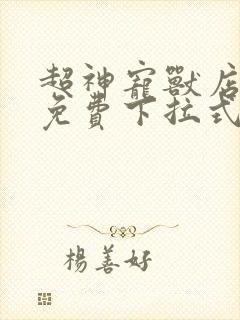 超神寵獸店
免費下拉式
楊善好